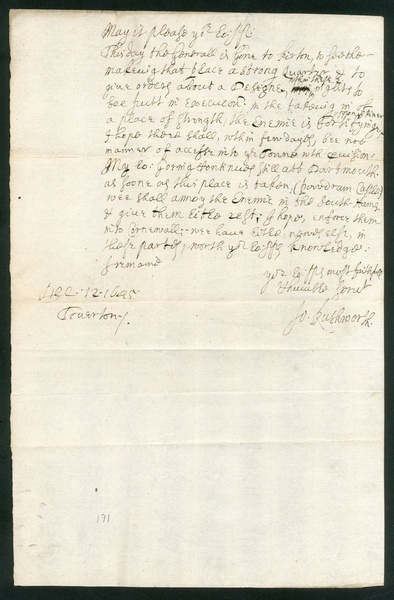 May it please yor Lo:pps:
This day the Generall is gone to Kirton, to see the
makeing that place a strong Quarter & to
give orders about a Designe, nights to
bee putt in execucon, in the takeing in of
a place of strength, the Enemie is Fortifying
I hope there shall, wthin few dayes, bee noe
manner of accesse into ye Towne wth
My Lo: still att Dartmouth
as soone as this place is taken, (Powdram Castle)
wee shall annoy the Enemie in the South-Hams
& give them little rest; I hope, enforce them
into Cornewall: wee have little newes else, in
these partes, worth yor Lo:pps Knowledge:
I remaine
yor Lo:pps most faithfull
& humble Servt
Jo. Rushworth.
Dec: 12. 1645
Teverton /.
171